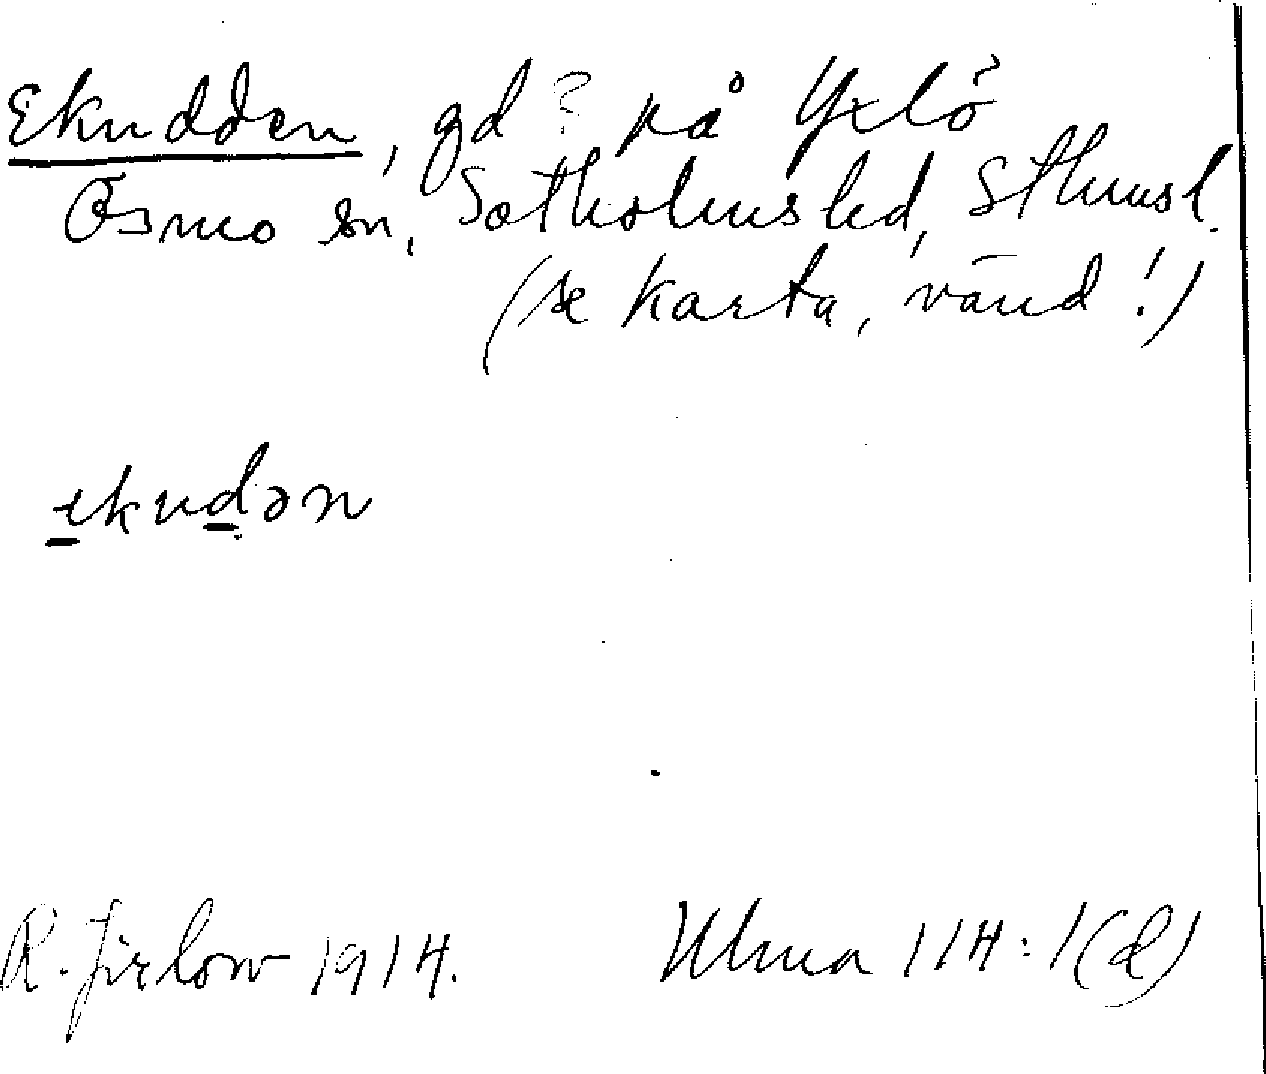 Ekudden, gd? på Yxlö
Ösmo sn, Sotholmshd, Sthmsl.
(se karta, vänd!)
ekudən
R. Jirlow 1914. Ulma 114:1(d)